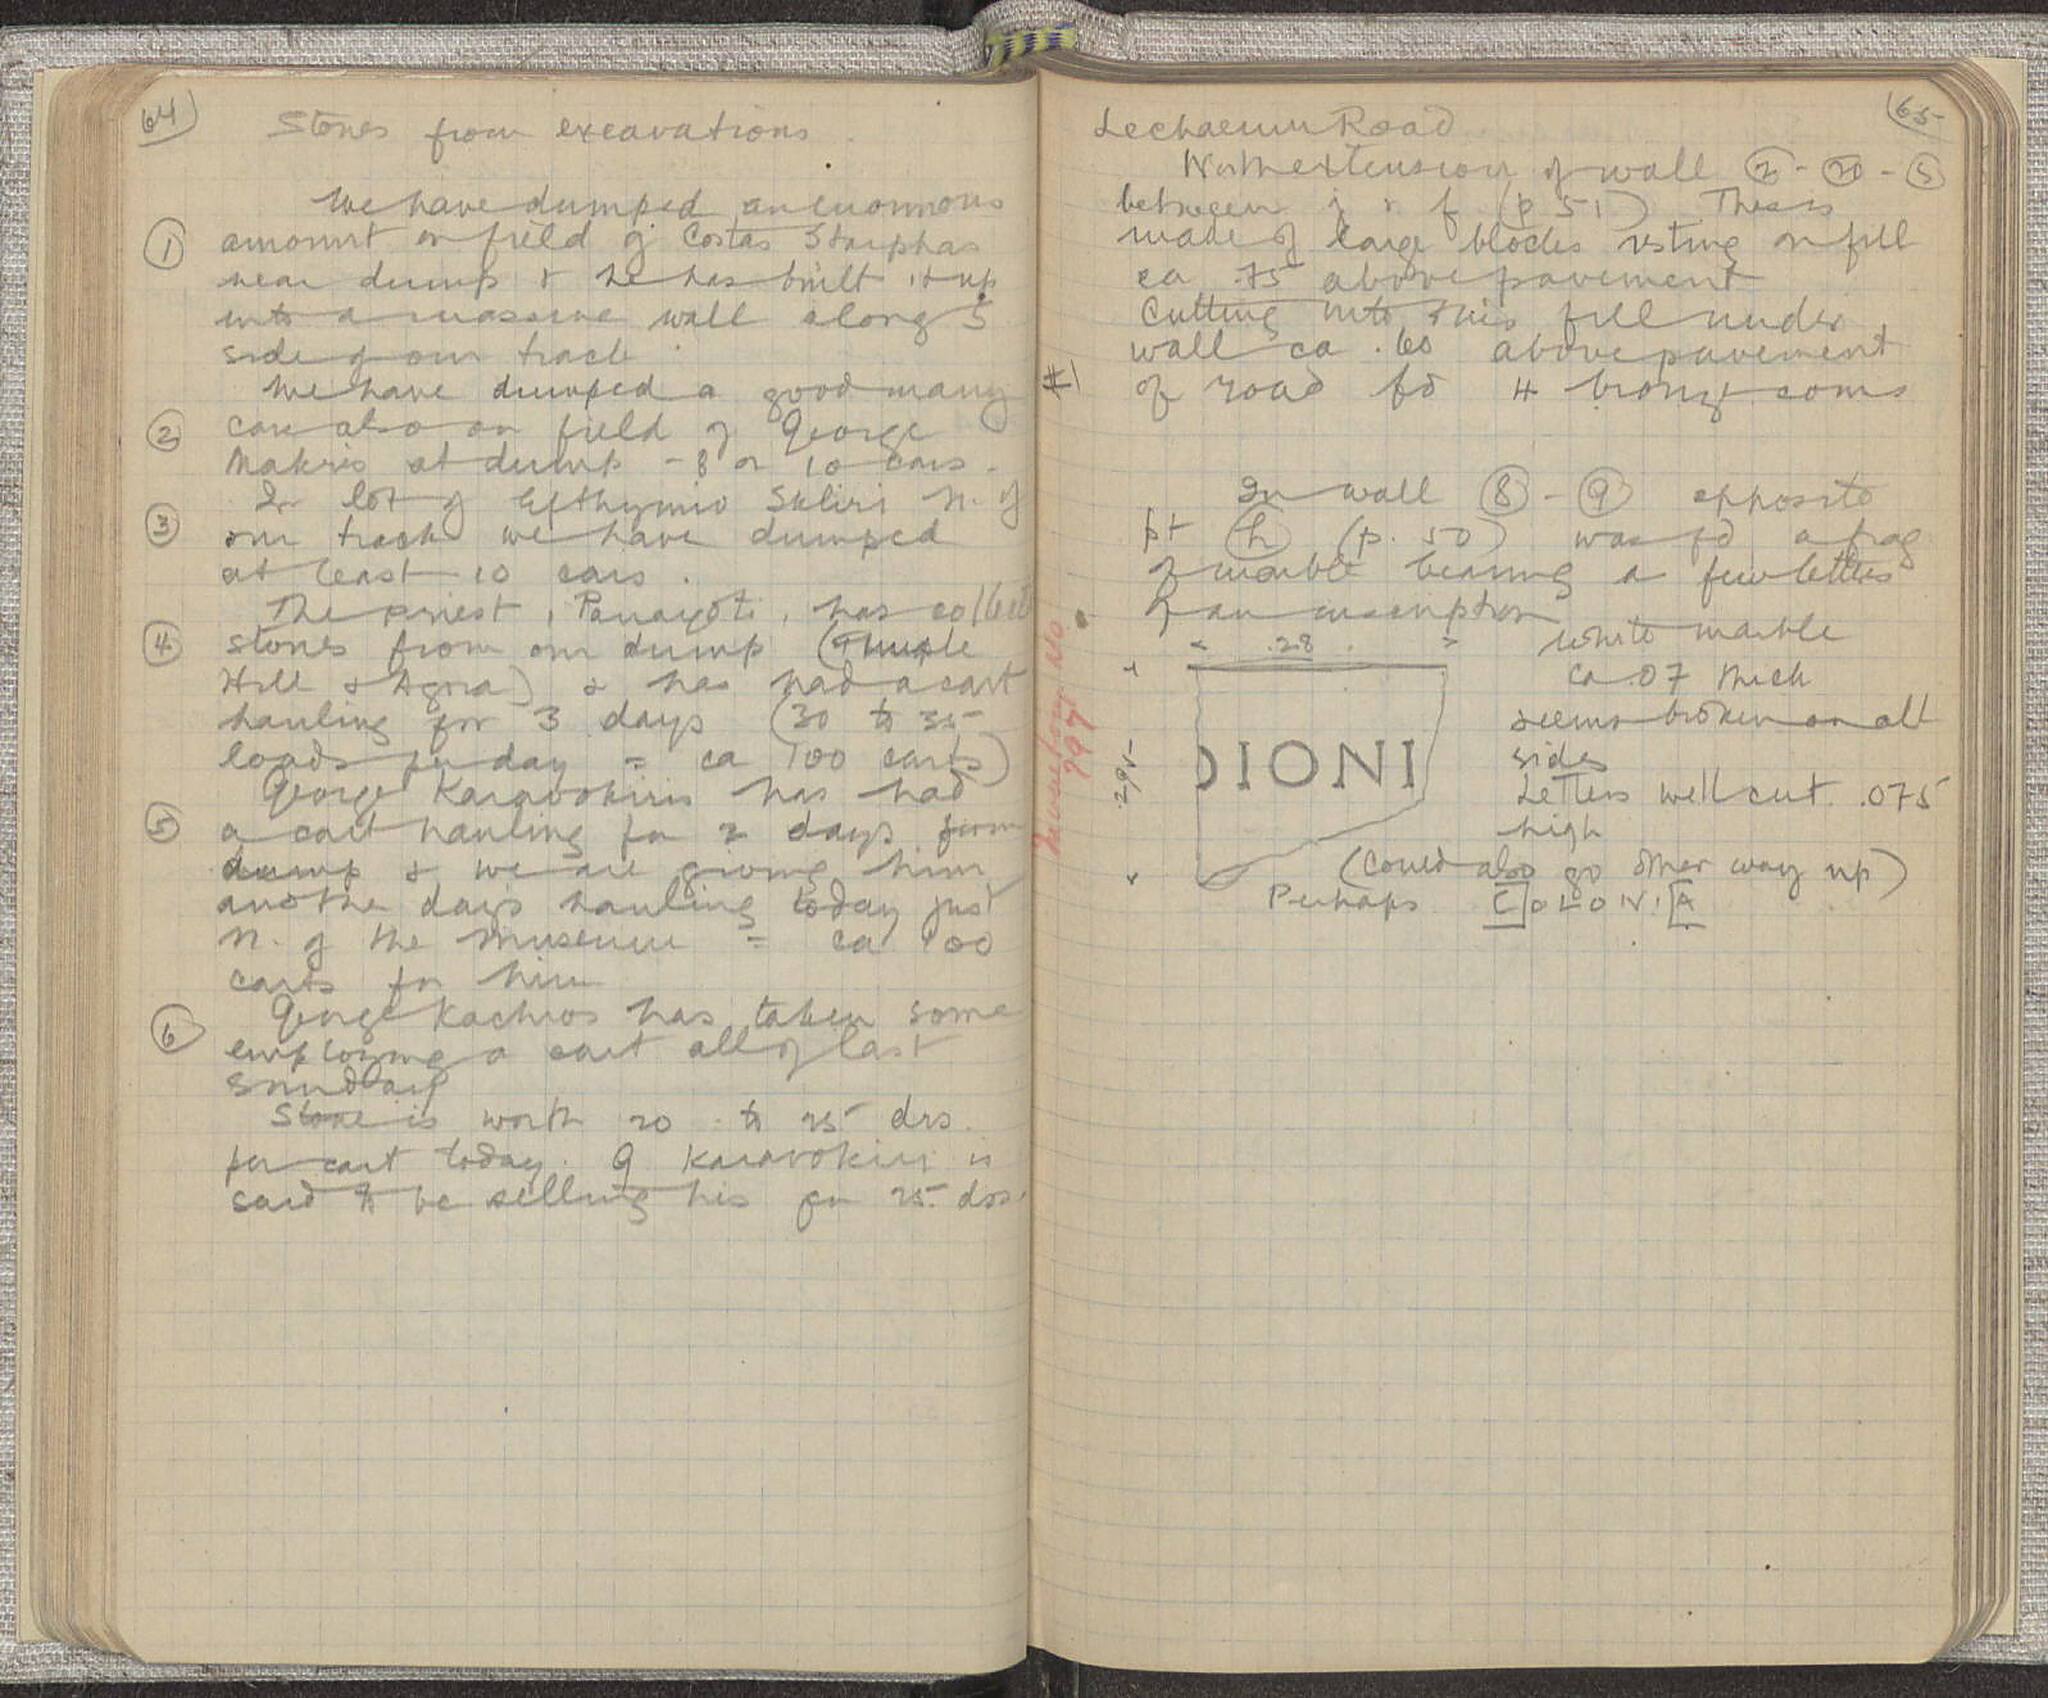 64
Stones from excavations
We have dumped an enormous
① amount on field of Costas Starphas
near dump & he has built it up
into a massive wall along S
side of our track.
We have dumped a good many
② cars also on field of George
Makris at dump - 8 or 10 cars.
In lot of Efthymio Skliri N. of
③ our track we have dumped
at least 10 cars.
The priest, Panayoti, has collect
④ stones from our dump (Temple
Hill & Agora) & has had a cart
hauling for 3 days (30 to 35
loads per day = ca 100 carts)
George Karavokiris has had
⑤ a cart hauling for 2 days from
dump & we are giving him
another days hauling today just
N. of the Museum = ca 100
carts for him
George Kachros has taken some
⑥ employing a cart all of last
Sunday
Stone is worth 20 to 25 drs.
per cart today. G Karavokiri is
said to be selling his for 25 drs.
65
Lechaeum Road
North extension of wall ② - ⑳ - ⑤
between j & f (p 51) This is
made of large blocks resting on fill
ca .75 above pavement
Cutting into this fill under
wall ca .60 above pavement
#1 of road fd 4 bronze coins
In wall ⑧ - ⑨ opposite
pt ⓗ (p. 50) was fd a frag
of marble bearing a few letters
of an inscription
Inventory No
797
.28
.295
OIONI
White marble
ca .07 thick
seems broken on all
sides
Letters well cut .075
high
(Could also go other way up)
Perhaps C]OLONI[A